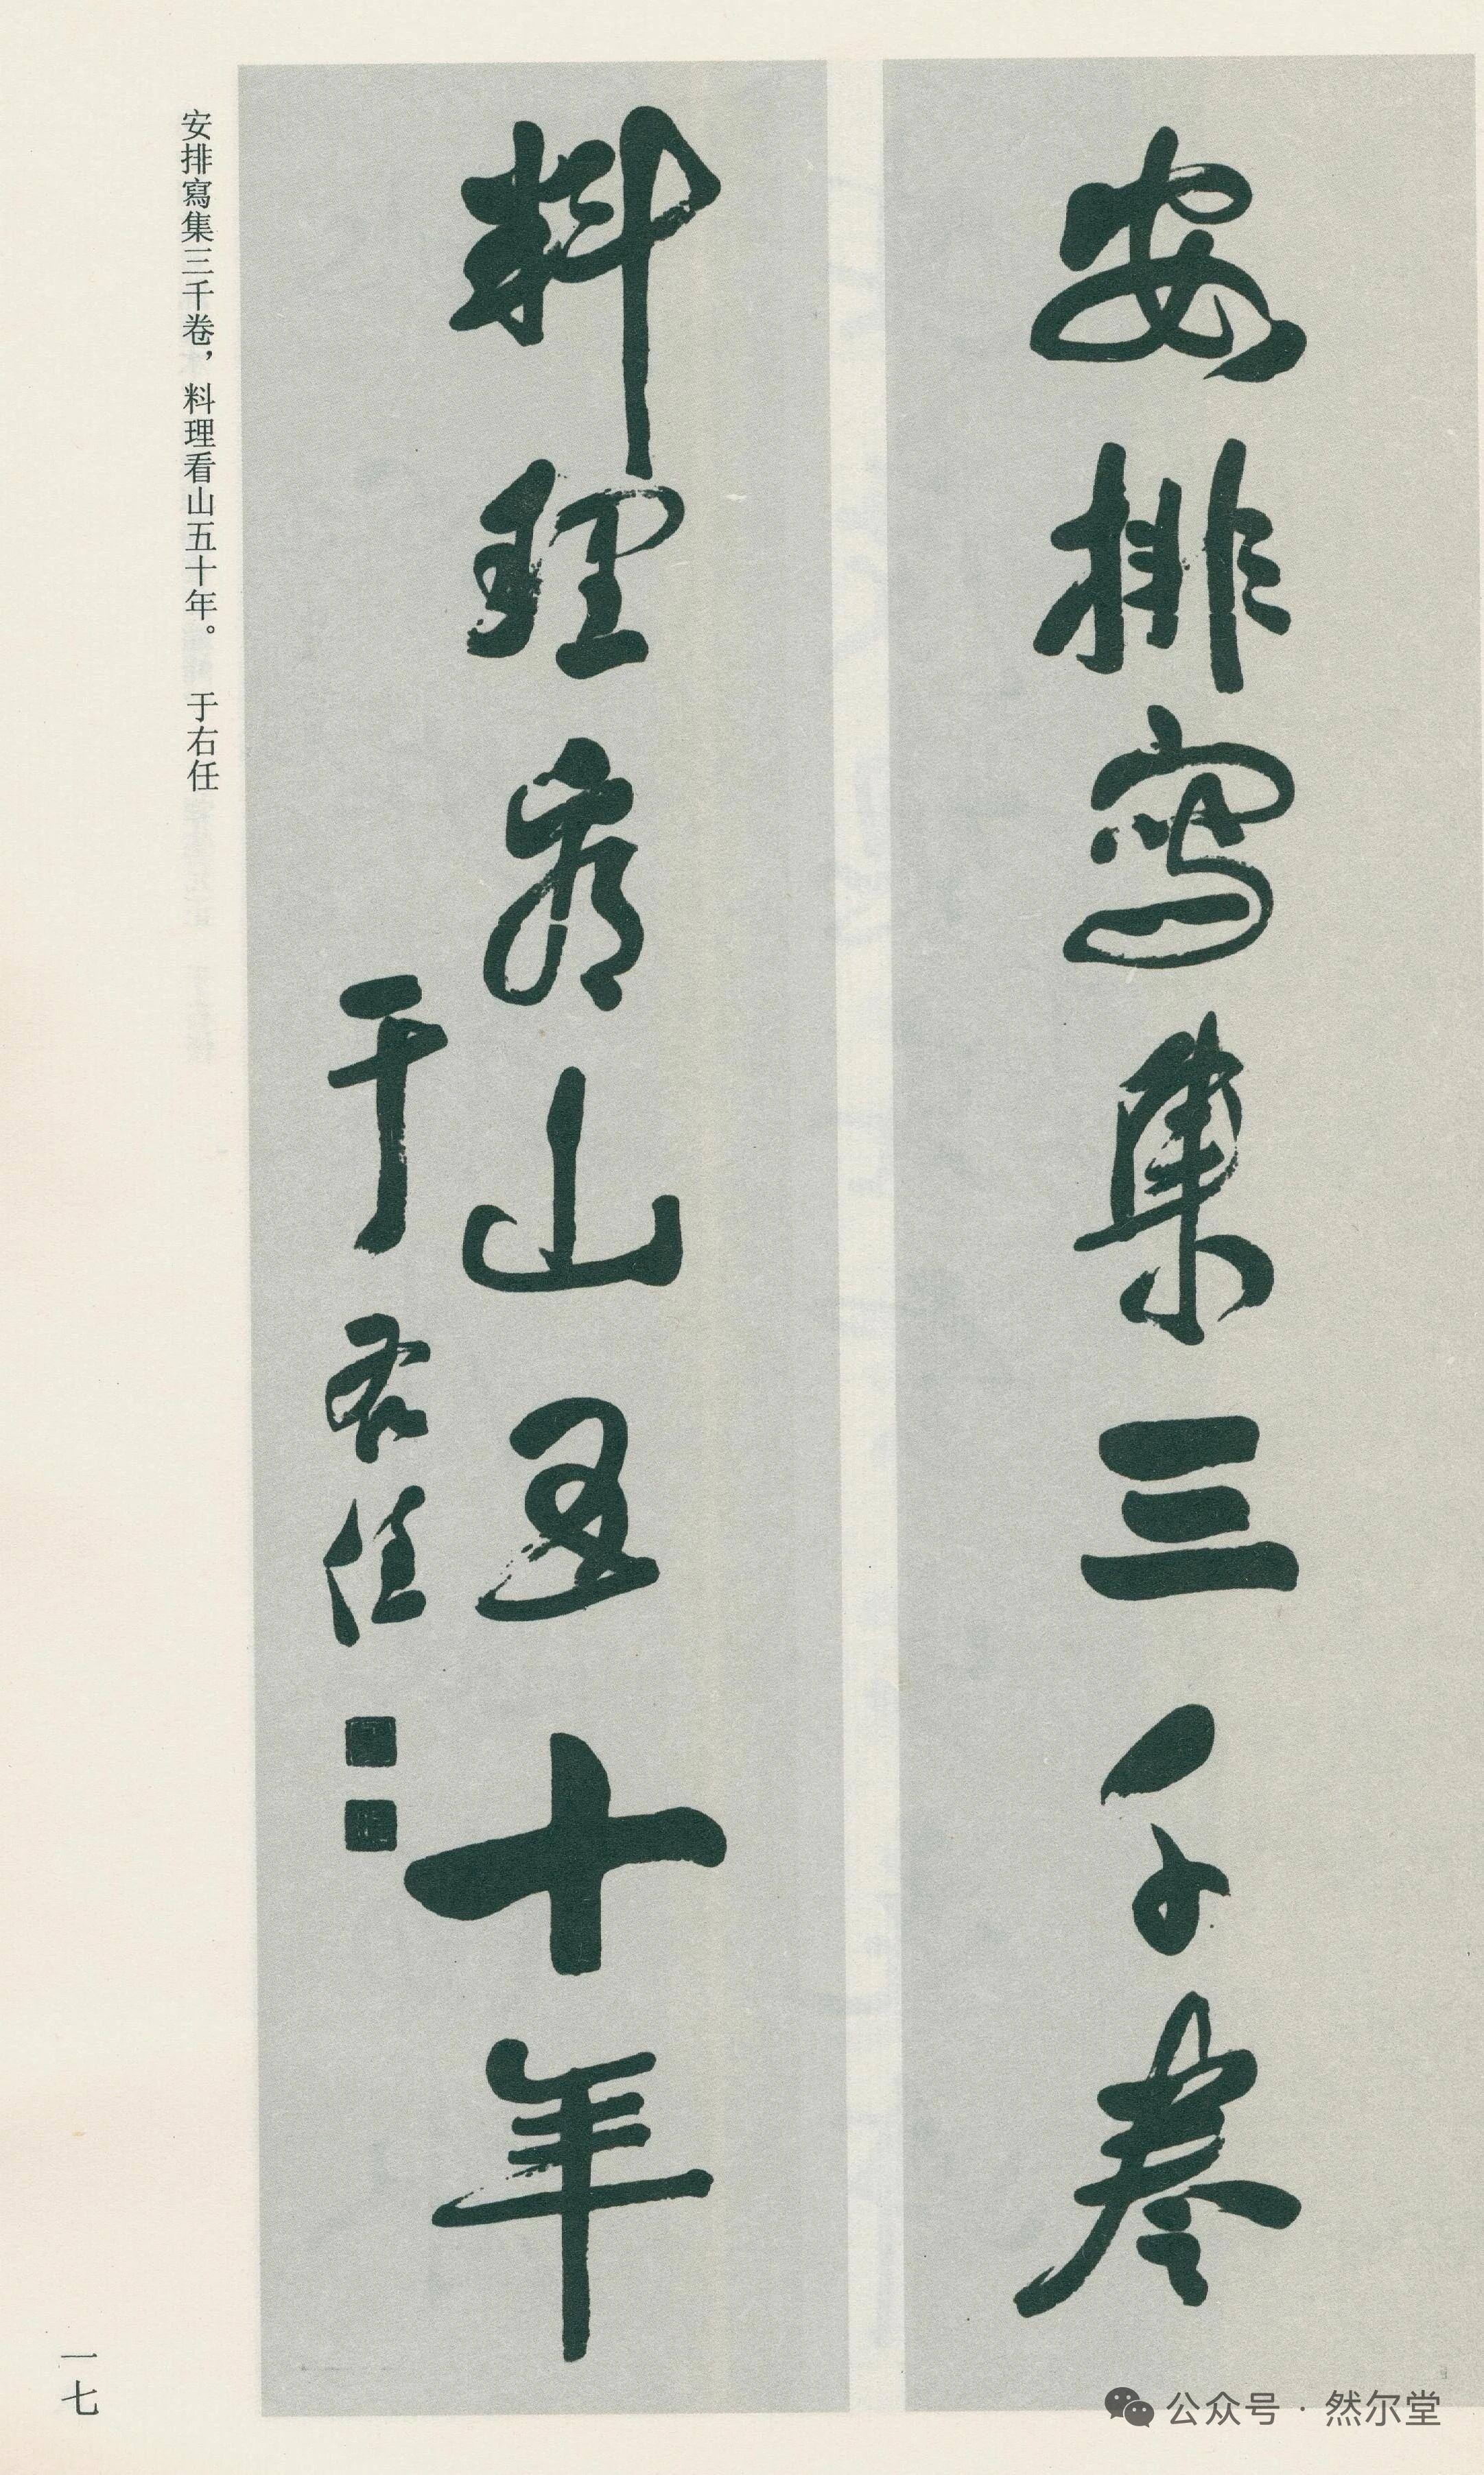 安排寫集三千卷
料理看山五十年
于右任
安排寫集三千卷，料理看山五十年。 于右任
一七
公众号 · 然尔堂